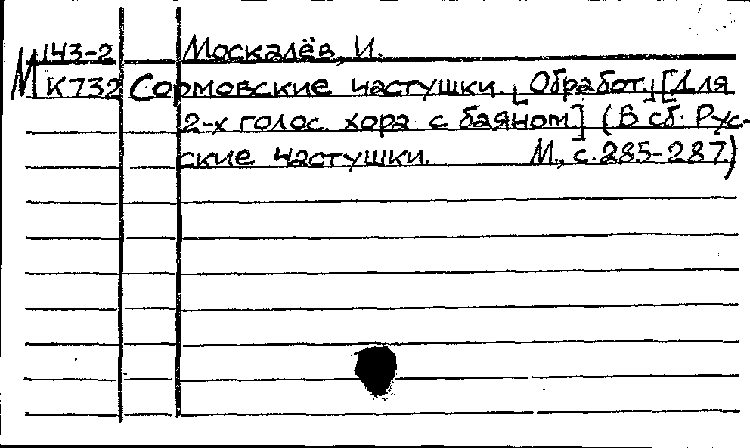 143-2 Москалёв, И.
М К732 Сормовские частушки. [Обработ.] [Для
2-х голос. хора с баяном] (В сб. Рус-
ские частушки. М., с. 285-287)